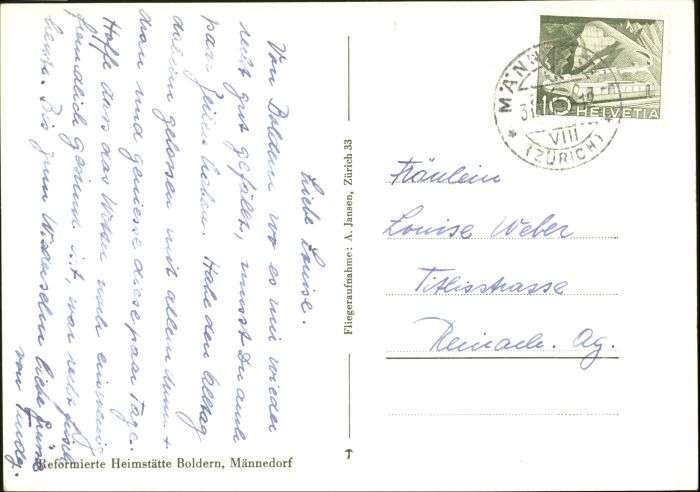 Liebe Louise.
Von Boldern wo es mir wieder
recht gut gefällt, musst Du auch
paar Zeilen haben. Habe den Alltag
daheim gelassen mit allem drum +
dran und geniesse diese paar Tage.
Hoffe dass das Wetter noch ein wenig
freundlich gesinnt ist, war recht
heute. Bis zum Wiedersehn liebe Grüsse
von
Reformierte Heimstätte Boldern, Männedorf
Fliegeraufnahme: A. Jansen, Zürich 33
31
VIII
(ZÜRICH)
10 HELVETIA
Fräulein
Louise Weber
Titlisstrasse
Reinach. Ag.